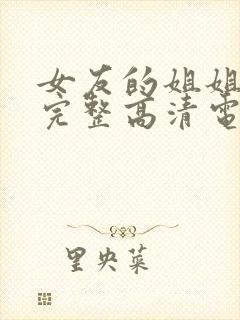 女友的姐姐
完整高清電
里央菜